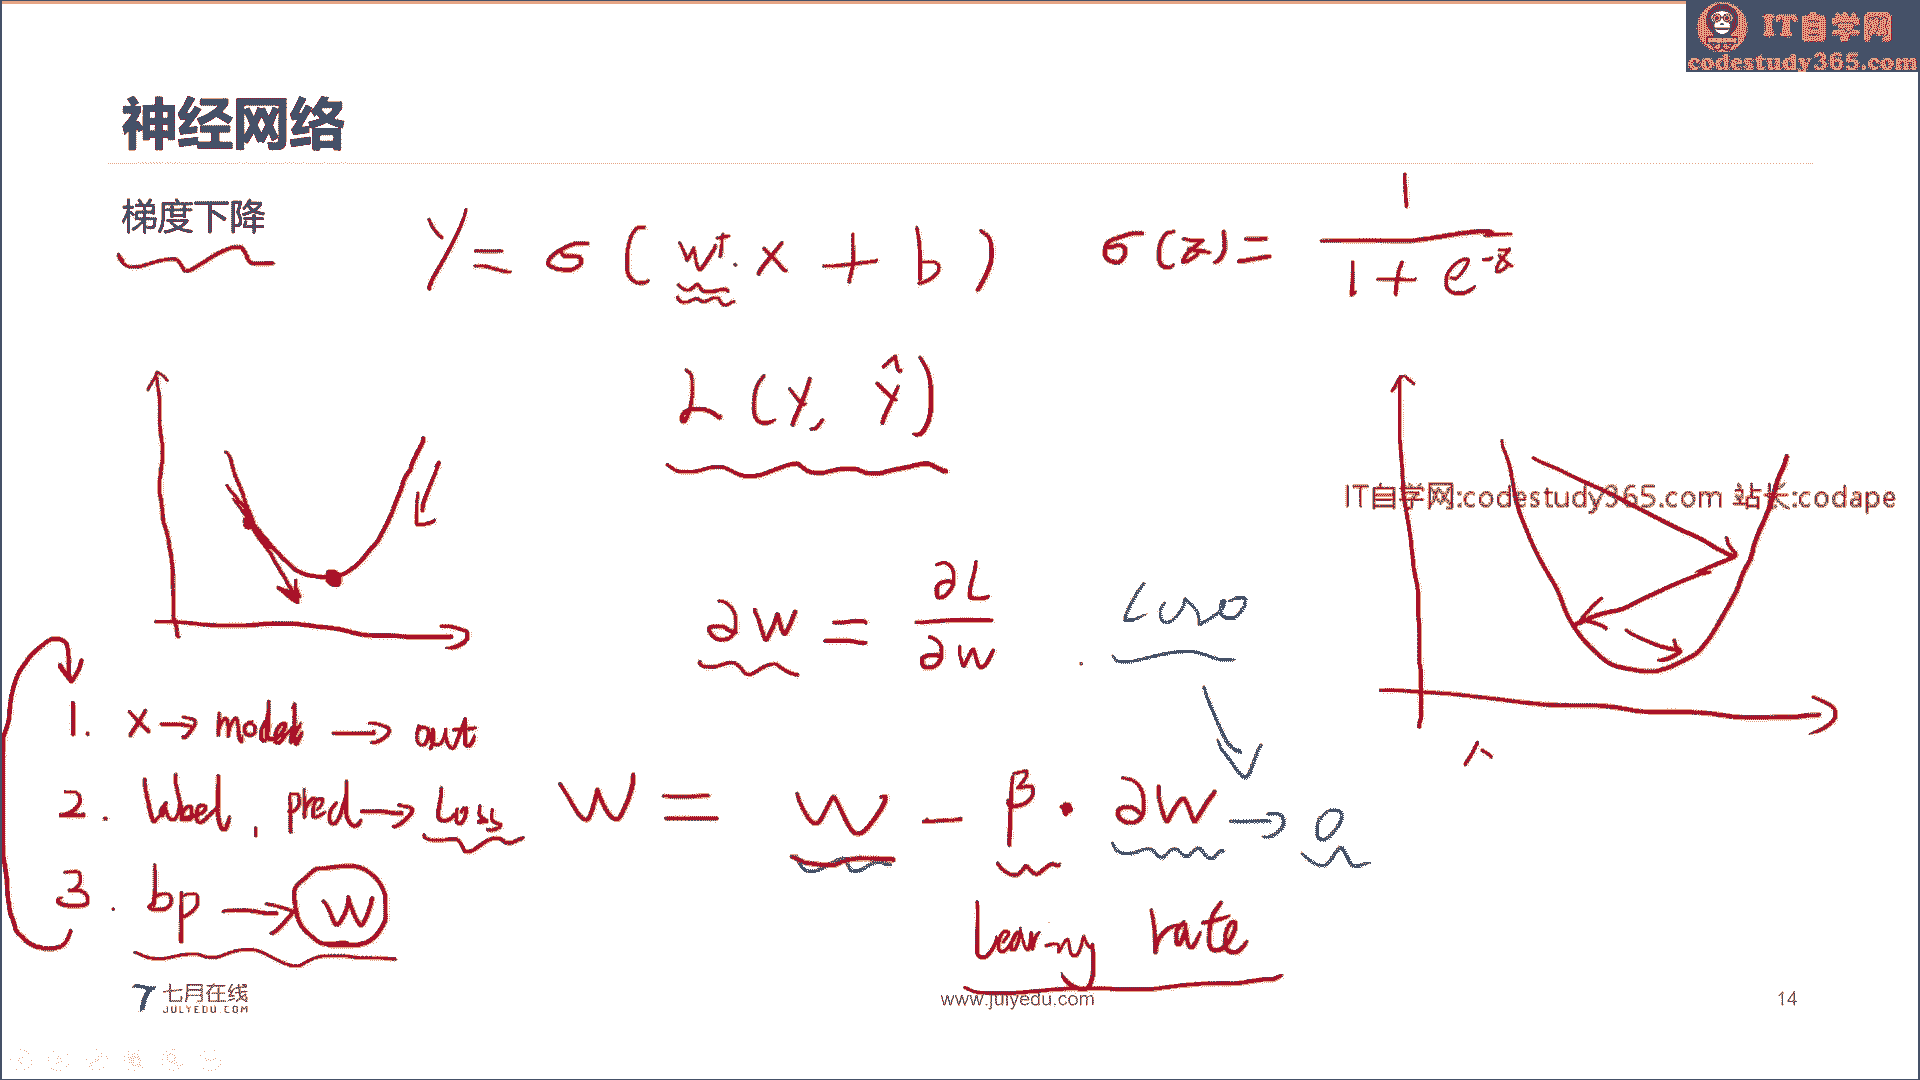 IT自学网
codestudy365.com
神经网络
梯度下降
Y = σ ( W^T · x + b )
σ(z) = 1 / (1 + e^{-z})
L (y, ŷ)
IT自学网:codestudy365.com 站长:codape
∂W = ∂L / ∂W
1. x → model → out
2. label, pred → Loss
3. bp → W
W = W - β · ∂W → 0
Learning rate
七月在线
JULYEDU.COM
www.julyedu.com
14